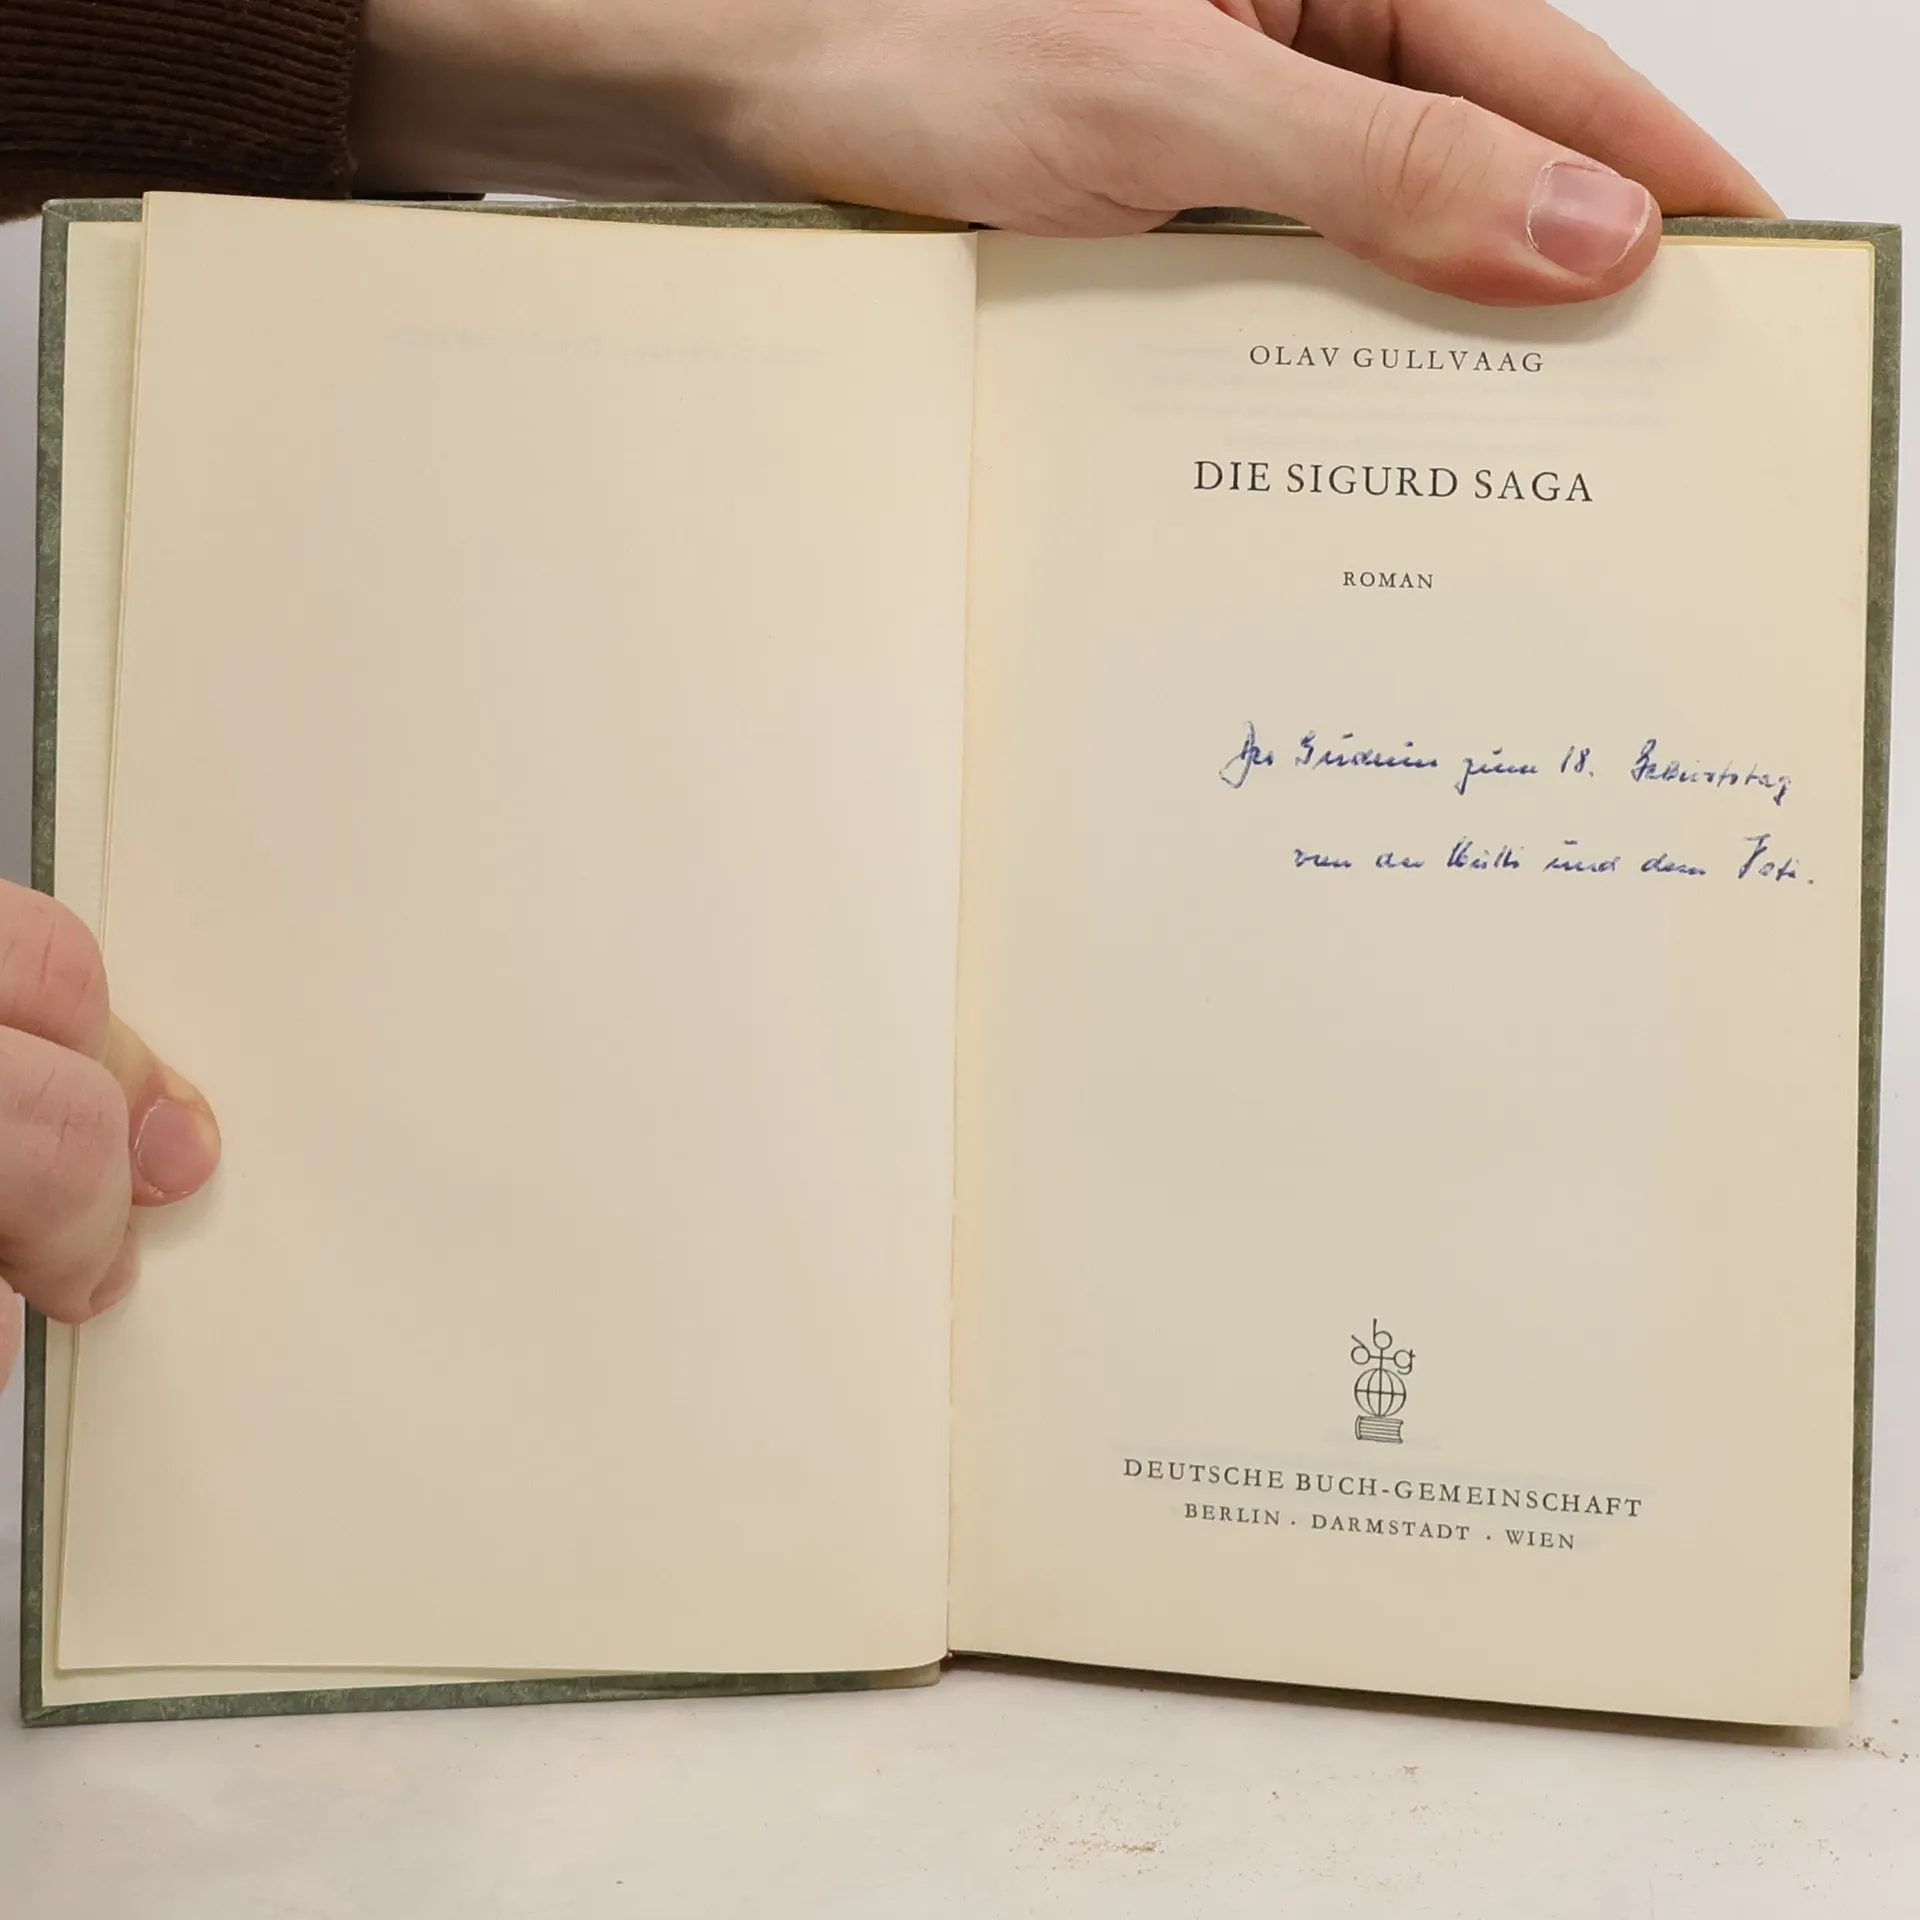 OLAV GULLVAAG
DIE SIGURD SAGA
ROMAN
Der Gudrun zum 18. Geburtstag
von der Mutti und dem Vati.
dbg
DEUTSCHE BUCH-GEMEINSCHAFT
BERLIN · DARMSTADT · WIEN